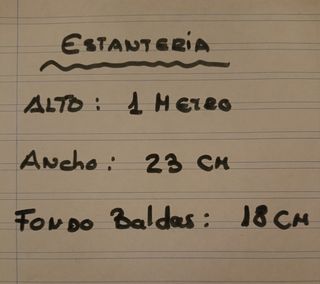 ESTANTERÍA
ALTO: 1 METRO
Ancho: 23 CM
FONDO Baldas: 18 CM